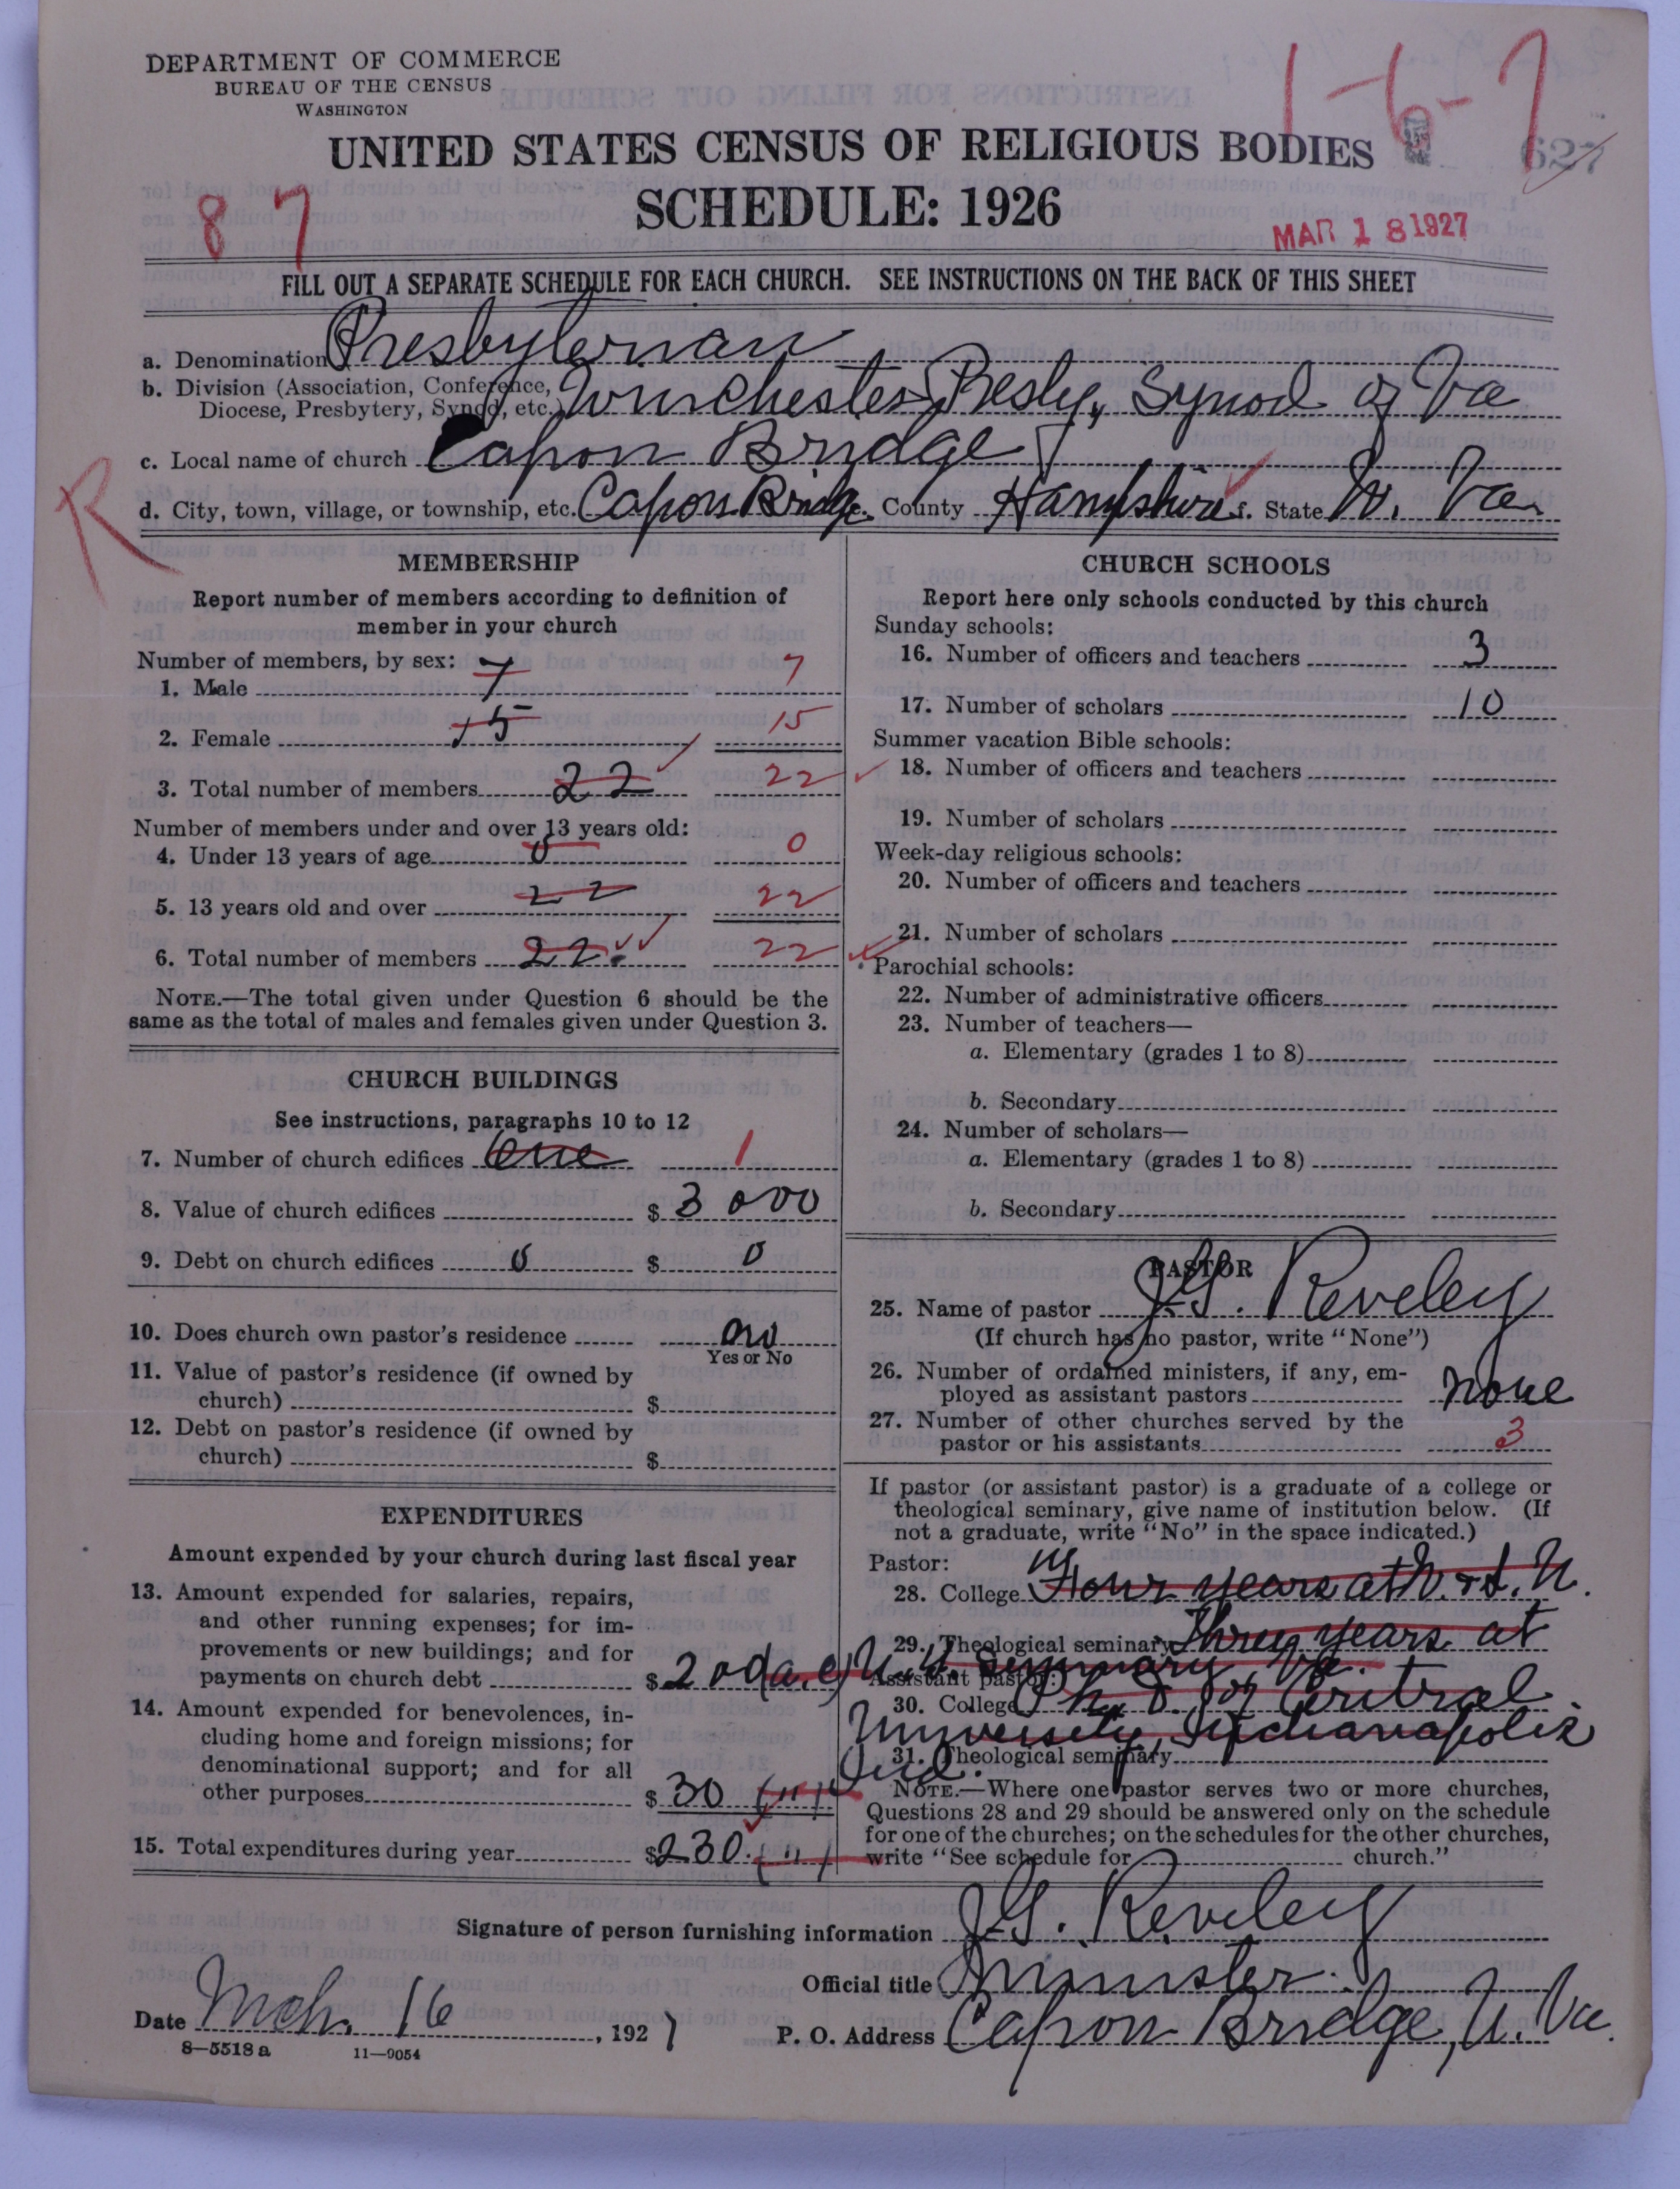 DEPARTMENT OF COMMERCE
BUREAU OF THE CENSUS
WASHINGTON
1-6-7
UNITED STATES CENSUS OF RELIGIOUS BODIES
627
SCHEDULE: 1926
87
MAR 18 1927
FILL OUT A SEPARATE SCHEDULE FOR EACH CHURCH. SEE INSTRUCTIONS ON THE BACK OF THIS SHEET
a. Denomination Presbyterian
b. Division (Association, Conference,
Diocese, Presbytery, Synod, etc.) Winchester Presby, Synod of Va
c. Local name of church Capon Bridge
R
d. City, town, village, or township, etc. Capon Bridge County Hampshire f. State W. Va.
MEMBERSHIP
Report number of members according to definition of
member in your church
Number of members, by sex:
1. Male 7 7
2. Female 15 15
3. Total number of members 22 22
Number of members under and over 13 years old:
4. Under 13 years of age 0 0
5. 13 years old and over 22 22
6. Total number of members 22 22
NOTE.—The total given under Question 6 should be the
same as the total of males and females given under Question 3.
CHURCH BUILDINGS
See instructions, paragraphs 10 to 12
7. Number of church edifices One 1
8. Value of church edifices $ 3000
9. Debt on church edifices 0 $ 0
10. Does church own pastor's residence no
Yes or No
11. Value of pastor's residence (if owned by
church) $
12. Debt on pastor's residence (if owned by
church) $
EXPENDITURES
Amount expended by your church during last fiscal year
13. Amount expended for salaries, repairs,
and other running expenses; for im-
provements or new buildings; and for
payments on church debt $ 200
14. Amount expended for benevolences, in-
cluding home and foreign missions; for
denominational support; and for all
other purposes $ 30 (")
15. Total expenditures during year $230. (")
CHURCH SCHOOLS
Report here only schools conducted by this church
Sunday schools:
16. Number of officers and teachers 3
17. Number of scholars 10
Summer vacation Bible schools:
18. Number of officers and teachers
19. Number of scholars
Week-day religious schools:
20. Number of officers and teachers
21. Number of scholars
Parochial schools:
22. Number of administrative officers
23. Number of teachers—
a. Elementary (grades 1 to 8)
b. Secondary
24. Number of scholars—
a. Elementary (grades 1 to 8)
b. Secondary
PASTOR
25. Name of pastor J. G. Reveley
(If church has no pastor, write "None")
26. Number of ordained ministers, if any, em-
ployed as assistant pastors none
27. Number of other churches served by the
pastor or his assistants 3
If pastor (or assistant pastor) is a graduate of a college or
theological seminary, give name of institution below. (If
not a graduate, write "No" in the space indicated.)
Pastor:
28. College Four years at W. & L. U.
29. Theological seminary three years at
Assistant pastor: Seminary, Va.
30. College Ph. D. of Central
University, Indianapolis
31. Theological seminary Ind.
NOTE.—Where one pastor serves two or more churches,
Questions 28 and 29 should be answered only on the schedule
for one of the churches; on the schedules for the other churches,
write "See schedule for church."
Signature of person furnishing information J. G. Reveley
Official title Minister
Date Mch. 16, 1927
P. O. Address Capon Bridge, W. Va.
8—5518 a 11—9054